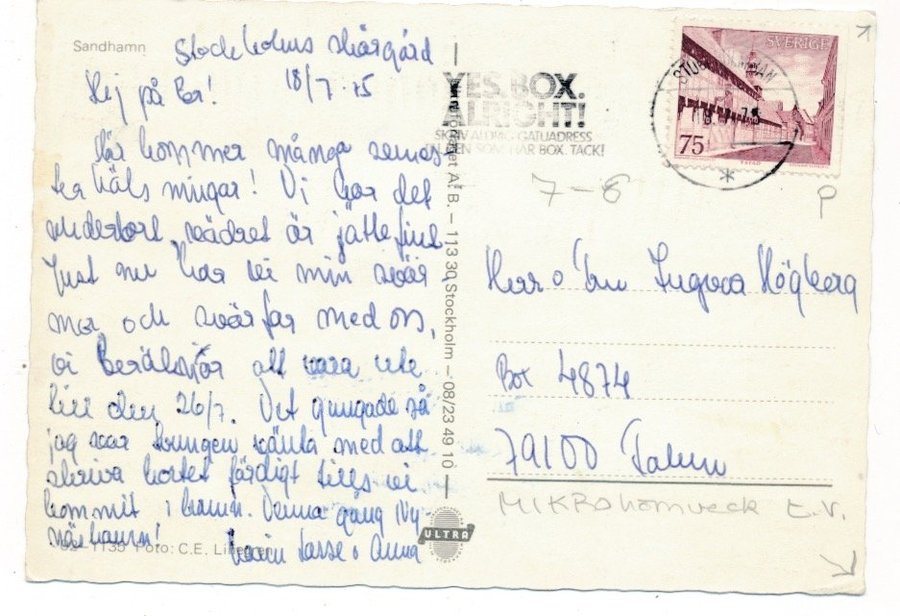 Sandhamn
Stockholms skärgård
18/7-75
Hej på Er!
Här kommer många semes-
ter hälsningar! Vi har det
underbart, vädret är jättefint
Just nu har vi min svär
mor och svärfar med oss,
vi beräknar att vara ute
till den 26/7. Det gungade så
jag var tvungen vänta med att
skriva kortet färdigt tills vi
kommit i hamn. Denna gång Ny-
näshamn!
Lasse o Anna
1135 Foto: C.E.
A.B. – 113 30 Stockholm – 08/23 49 10
ULTRA
YES, BOX.
ALRIGHT!
SKRIV ALDRIG GATUADRESS
TILL DEN SOM HAR BOX. TACK!
SVERIGE
75
7-8
P
Herr o Fru Ingvar Högberg
Box 4874
79100 Falun
MIKROhomveck t.v.